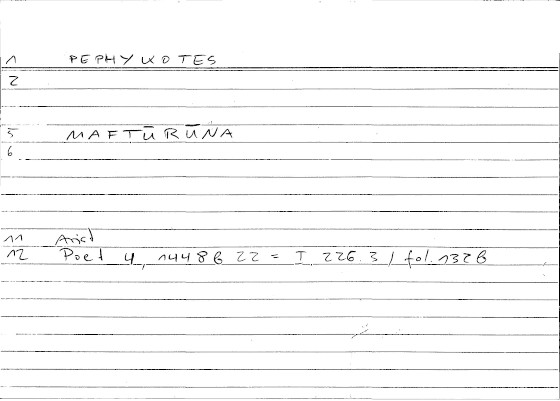 1 PEPHYKOTES
2
5 MAFTŪRŪNA
6
11 Arist
12 Poet 4, 1448 B 22 = I 226.3 / fol. 132 B